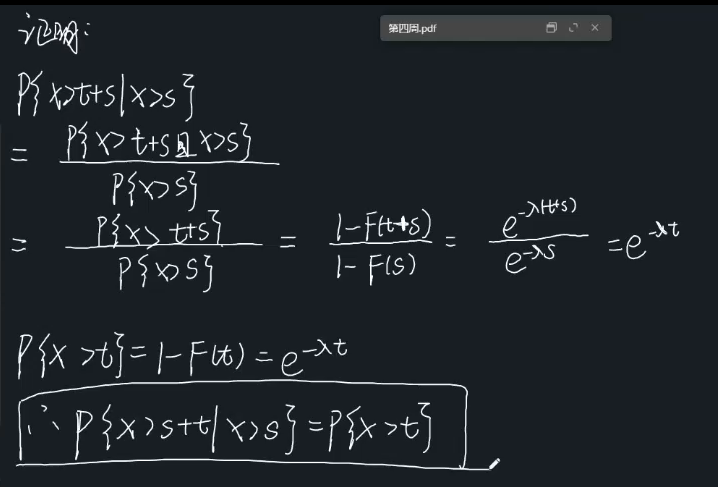 证明:
第四周.pdf
P{x>t+s|x>s}
= P{x>t+s且x>s} / P{x>s}
= P{x>t+s} / P{x>s} = 1-F(t+s) / 1-F(s) = e^-λ(t+s) / e^-λs = e^-λt
P{x>t}=1-F(t)=e^-λt
∴ P{x>s+t|x>s}=P{x>t}